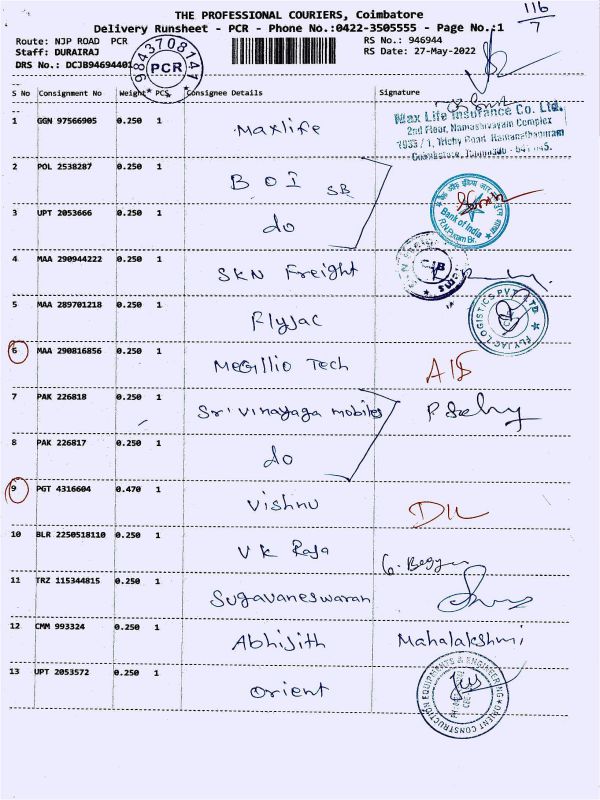 THE PROFESSIONAL COURIERS, Coimbatore
Delivery Runsheet - PCR - Phone No.:0422-3505555 - Page No.:1
116/7
Route: NJP ROAD PCR
RS No.: 946944
Staff: DURAIRAJ
RS Date: 27-May-2022
DRS No.: DCJB94694401
9843708141
PCR
S No Consignment No Weight PCS Consignee Details Signature
1 GGN 97566905 0.250 1 Maxlife
Max Life Insurance Co. Ltd.
2nd Floor, Namashivayam Complex
7933 / 1, Trichy Road, Ramanathapuram
Coimbatore, Tamilnadu - 641 045.
2 POL 2538287 0.250 1 BOI SB
Bank of India
R.N.Puram Br.
3 UPT 2053666 0.250 1 do
4 MAA 290944222 0.250 1 SKN Freight
CJB
5 MAA 289701218 0.250 1 Flyjac
FLYJAC LOGISTICS PVT LTD
6 MAA 290816856 0.250 1 Megillio Tech AIS
7 PAK 226818 0.250 1 Sri Vinayaga mobiles
8 PAK 226817 0.250 1 do
9 PGT 4316604 0.470 1 Vishnu DIL
10 BLR 2250518110 0.250 1 VK Raja
11 TRZ 115344815 0.250 1 Sugavaneswaran
12 CMM 993324 0.250 1 Abhijith Mahalakshmi
13 UPT 2053572 0.250 1 Orient
ORIENT CONSTRUCTION EQUIPMENTS & ENGINEERING